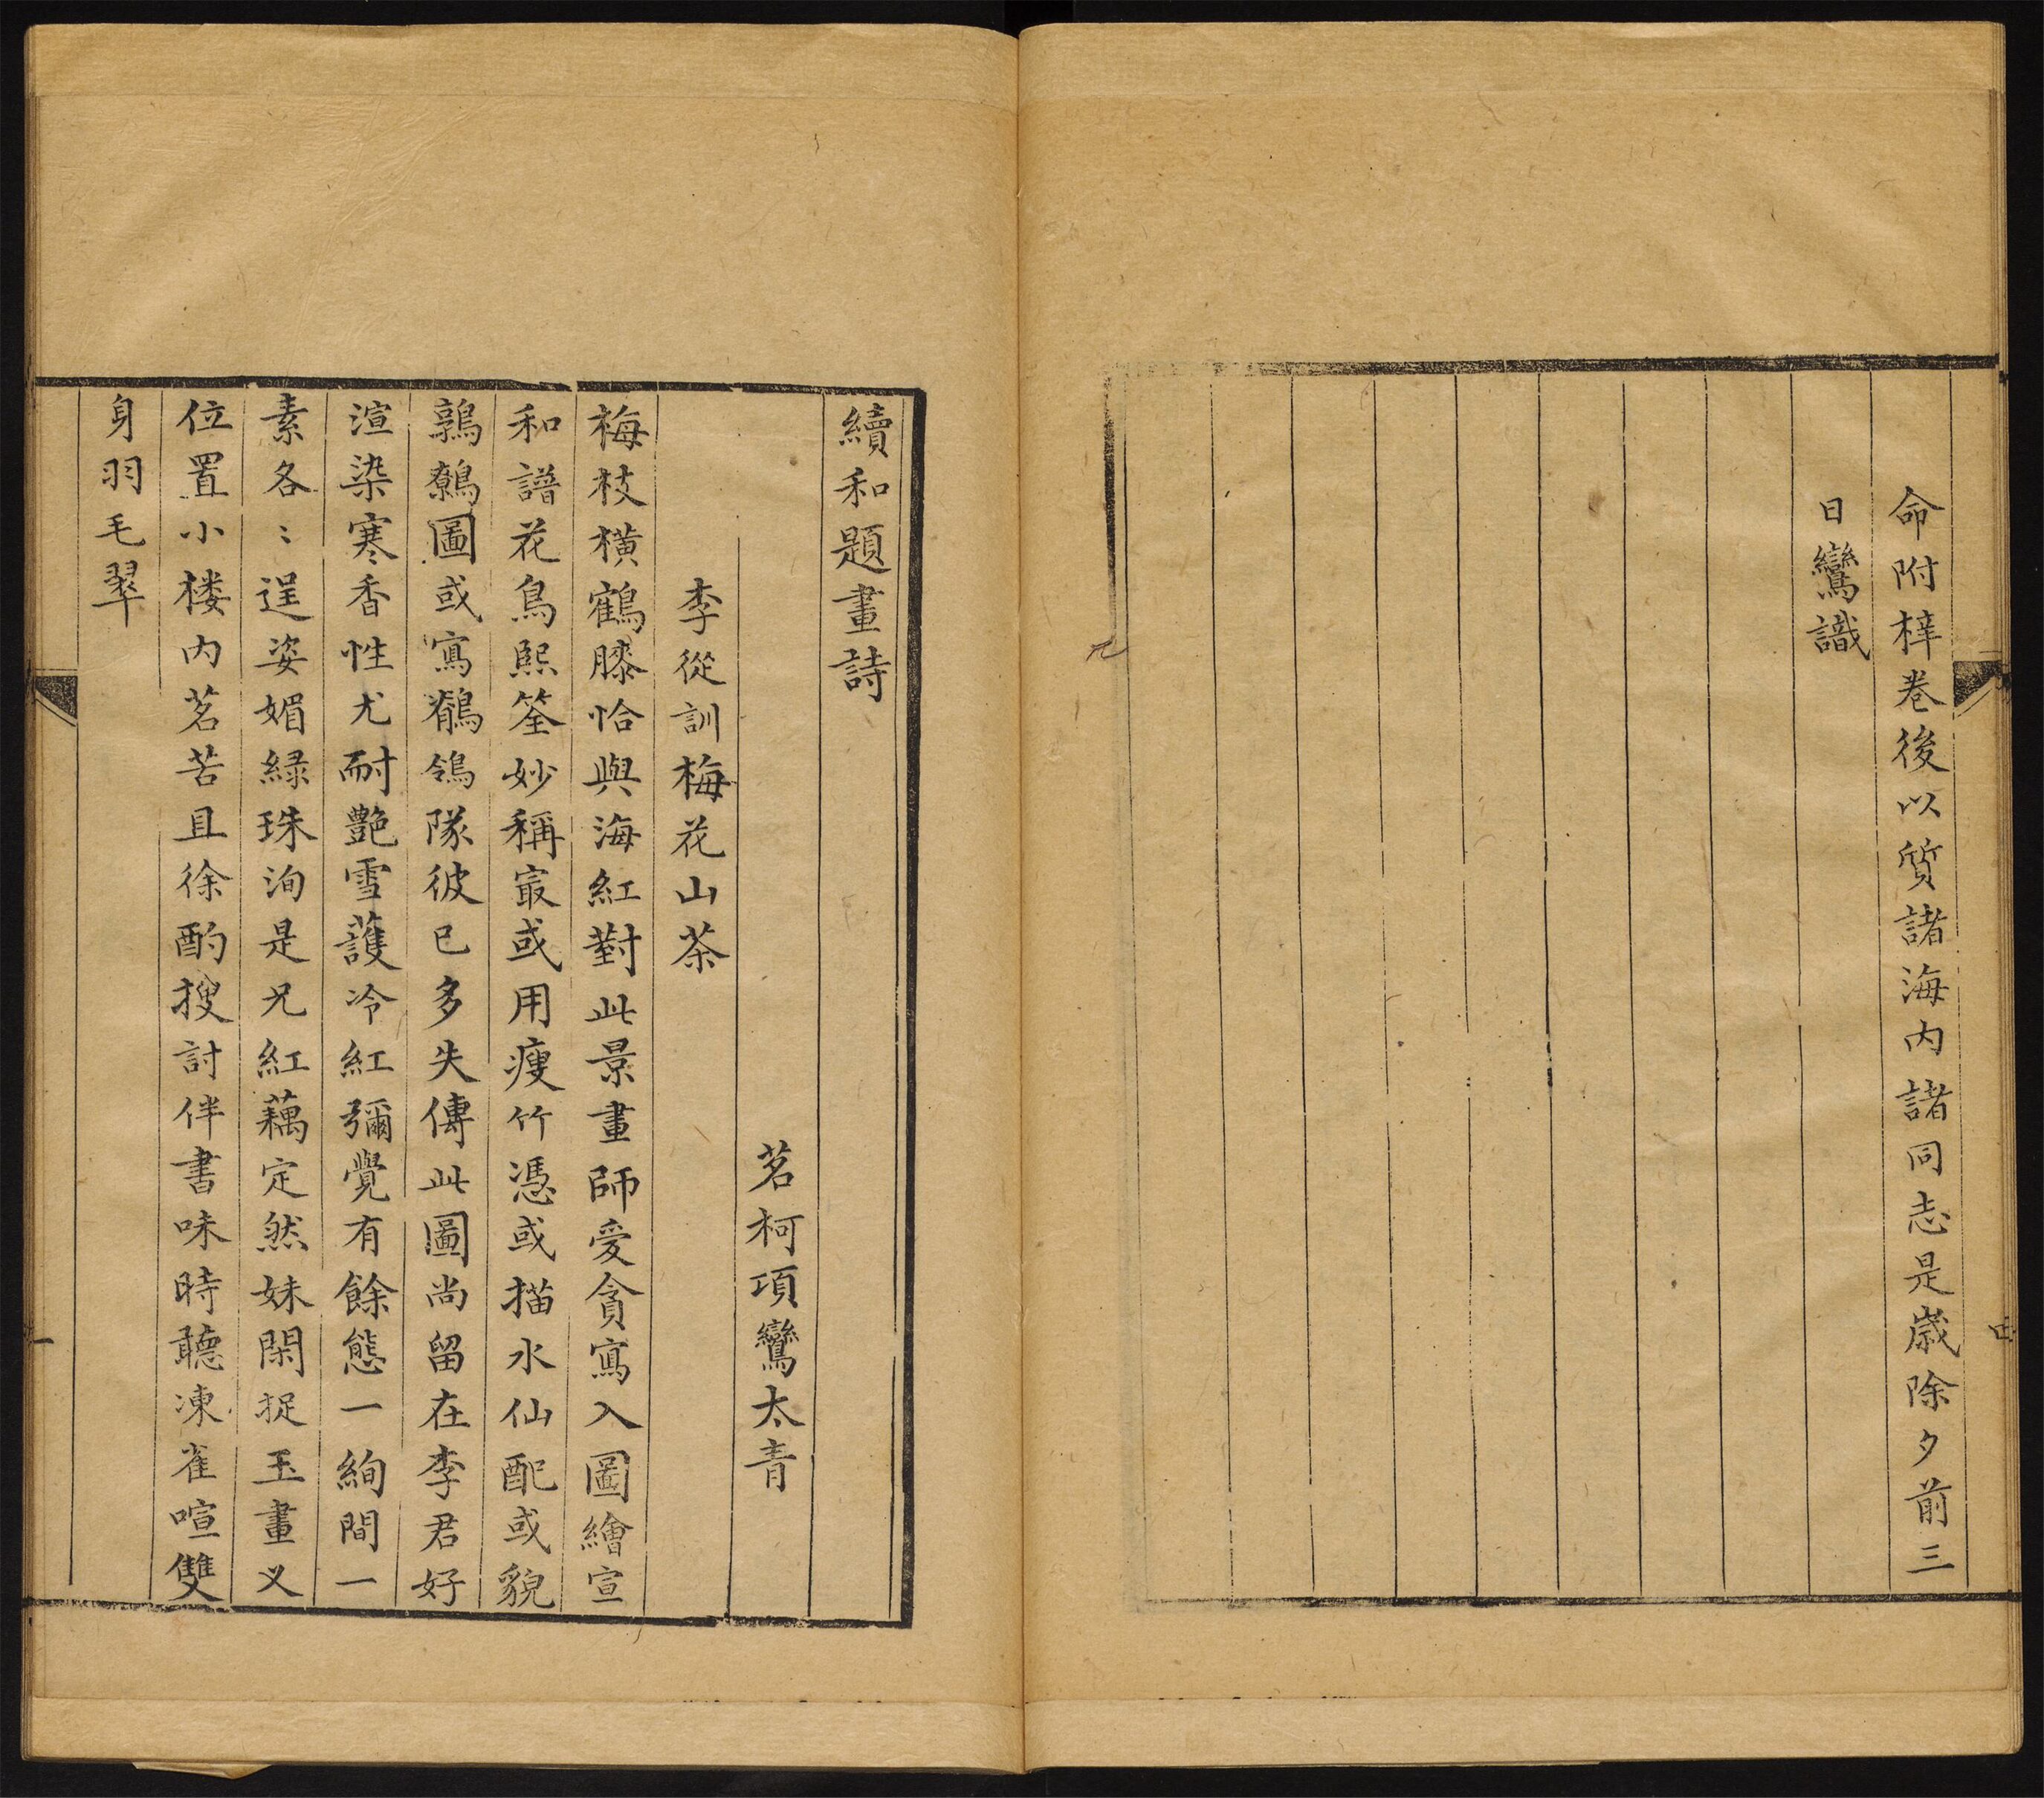 命附梓卷後以質諸海内諸同志是歳除夕前三
日鸞識
續和題畫詩
茗柯項鸞太青
李從訓梅花山茶
梅枝横鶴膝恰與海紅對此景畫師愛貪寫入圖繪宣
和譜花鳥熙筌妙稱㝡或用瘦竹憑或描水仙配或貌
鶉鷯圖或寫鶺鴒隊彼已多失傳此圖尚留在李君好
渲染寒香性尤耐艶雪護冷紅彌覺有餘態一絢間一
素各〻逞姿媚緑珠洵是兄紅藕定然妹閑捉玉畫叉
位置小楼内茗苦且徐酌搜討伴書味時聽凍雀喧雙
身羽毛翠
一